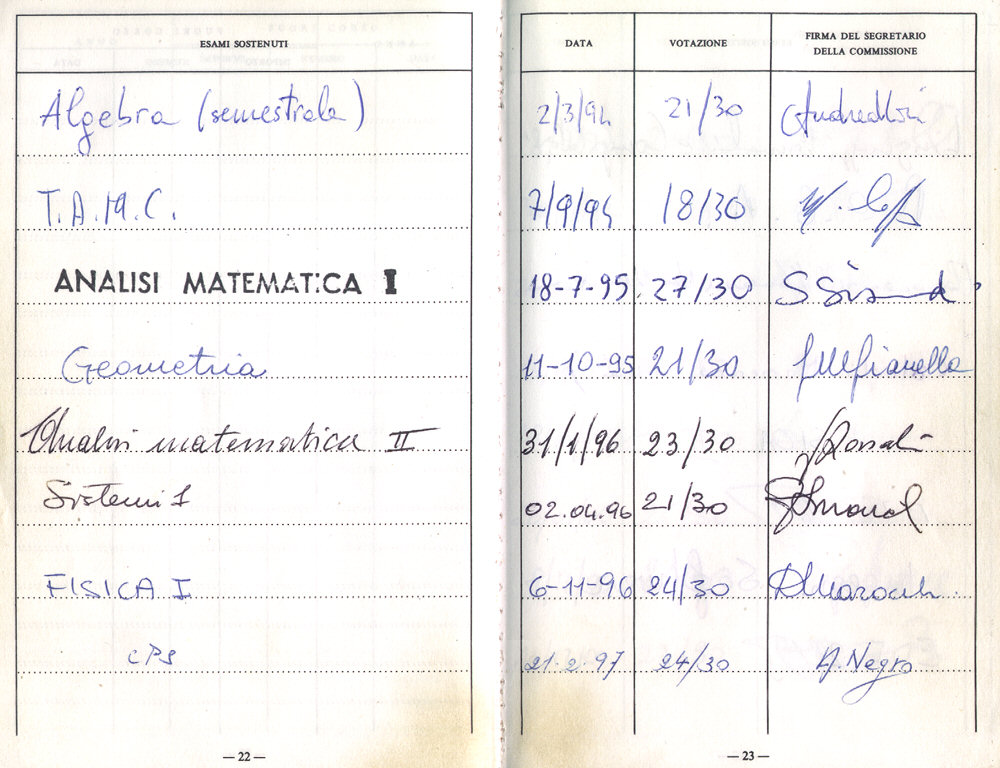 ESAMI SOSTENUTI DATA VOTAZIONE FIRMA DEL SEGRETARIO
DELLA COMMISSIONE
Algebra (semestrale) 2/3/94 21/30
T.A.M.C. 7/9/94 18/30
ANALISI MATEMATICA I 18-7-95 27/30
Geometria 11-10-95 21/30
Analisi matematica II 31/1/96 23/30
Sistemi 1 02.04.96 21/30
FISICA I 6-11-96 24/30
CPS 21.2.97 24/30 A. Negro
— 22 — — 23 —